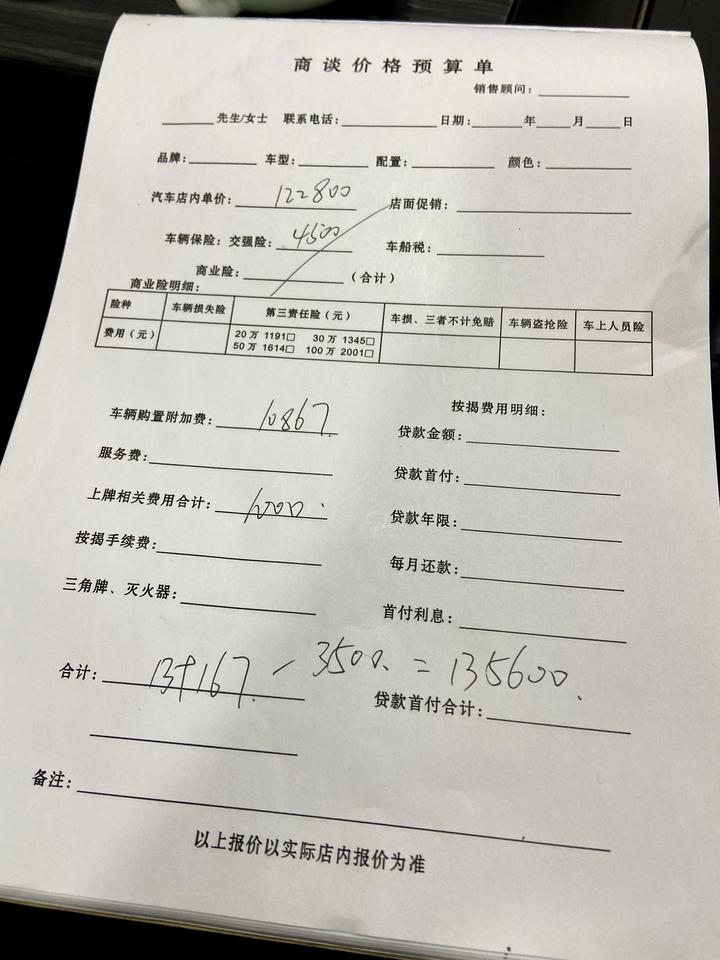 商谈价格预算单
销售顾问:
先生/女士 联系电话: 日期: 年 月 日
品牌: 车型: 配置: 颜色:
汽车店内单价: 122800 店面促销:
车辆保险: 交强险: 4500 车船税:
商业险: (合计)
商业险明细:
险种 车辆损失险 第三责任险(元) 车损、三者不计免赔 车辆盗抢险 车上人员险
费用(元) 20万 1191□ 30万 1345□
50万 1614□ 100万 2001□
按揭费用明细:
车辆购置附加费: 10867 贷款金额:
服务费: 贷款首付:
上牌相关费用合计: 1000 贷款年限:
按揭手续费: 每月还款:
三角牌、灭火器: 首付利息:
合计: 139167 - 3500. = 135600.
贷款首付合计:
备注:
以上报价以实际店内报价为准